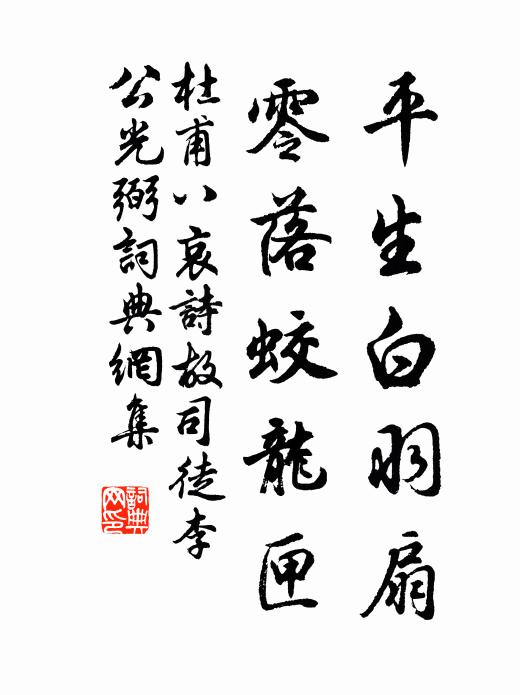 平生白羽扇
零落蛟龍匣
杜甫八哀詩故司徒李
公光弼詞典網集
詞典
网印